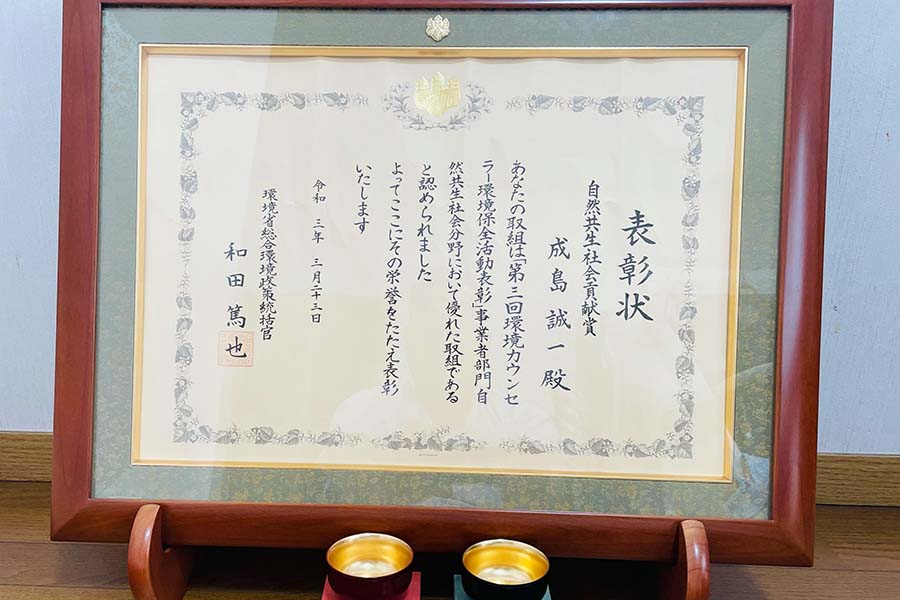 表彰状
自然共生社会貢献賞
成島誠一殿
あなたの取組は「第三回環境カウンセ
ラー環境保全活動表彰」事業者部門自
然共生社会分野において優れた取組である
と認められました
よってここにその栄誉をたたえ表彰
いたします
令和三年三月二十三日
環境省総合環境政策統括官
和田篤也